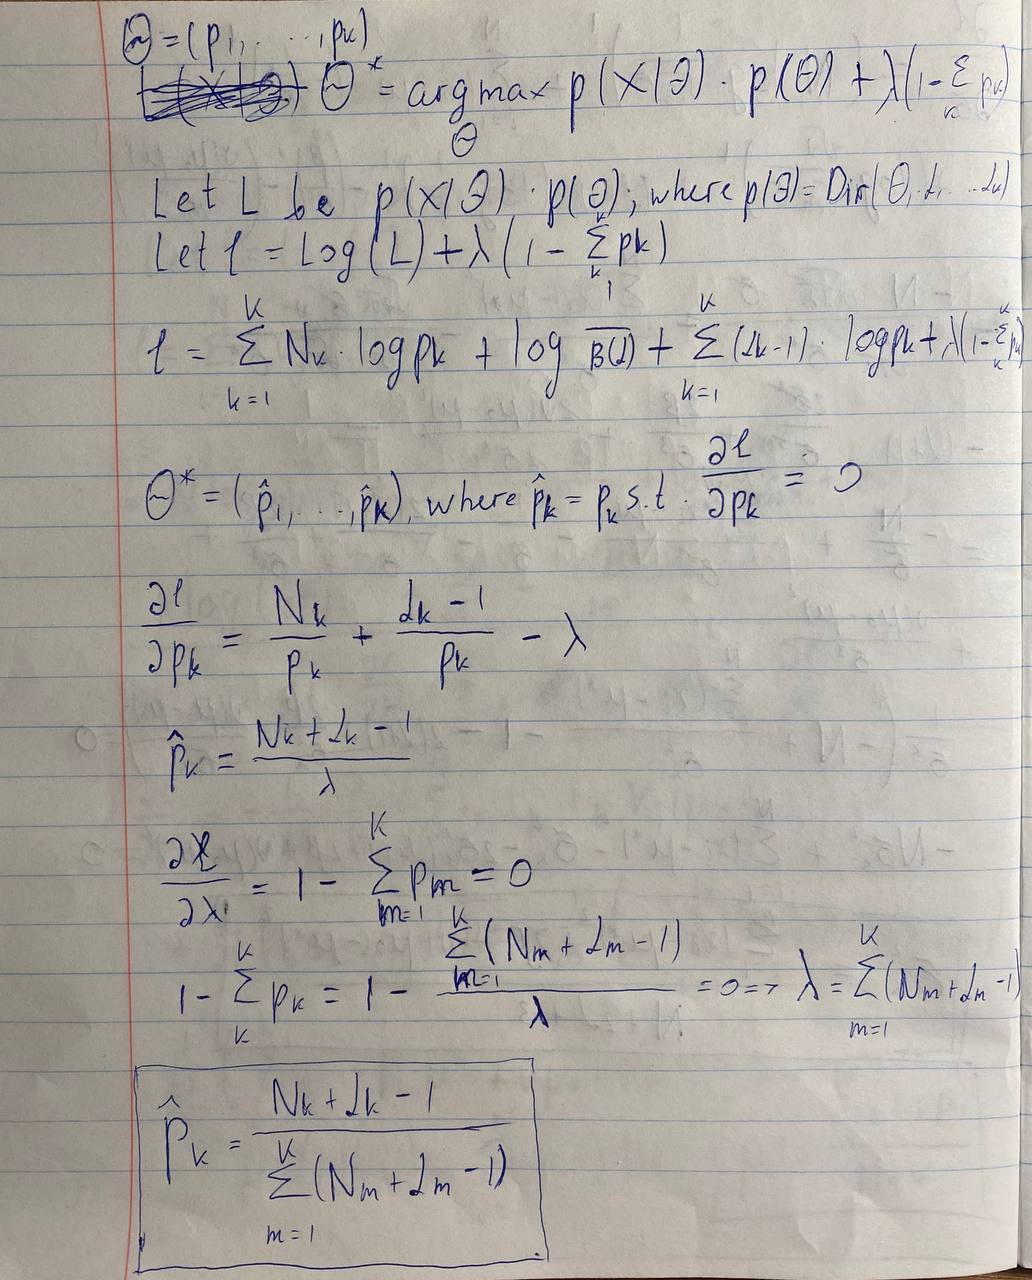 Θ = (p₁, . . . , pₖ)
Θ* = argmax_Θ p(X|Θ) · p(Θ) + λ(1 - Σₖ pₖ)
Let L be p(X|Θ) · p(Θ), where p(Θ) = Dir(Θ, α, ... αₖ)
Let ℓ = Log(L) + λ(1 - Σₖᴷ pₖ)
ℓ = Σₖ₌₁ᴷ Nₖ · log pₖ + log 1/B(α) + Σₖ₌₁ᴷ (αₖ-1) · log pₖ + λ(1 - Σₖᴷ pₖ)
Θ* = (p̂₁, . . . , p̂ₖ), where p̂ₖ = pₖ s.t. ∂ℓ/∂pₖ = 0
∂ℓ/∂pₖ = Nₖ/pₖ + (αₖ - 1)/pₖ - λ
p̂ₖ = (Nₖ + αₖ - 1)/λ
∂ℓ/∂λ = 1 - Σₘ₌₁ᴷ pₘ = 0
1 - Σₖᴷ pₖ = 1 - Σₘ₌₁ᴷ (Nₘ + αₘ - 1)/λ = 0 => λ = Σₘ₌₁ᴷ (Nₘ + αₘ - 1)
p̂ₖ = (Nₖ + αₖ - 1)/Σₘ₌₁ᴷ (Nₘ + αₘ - 1)